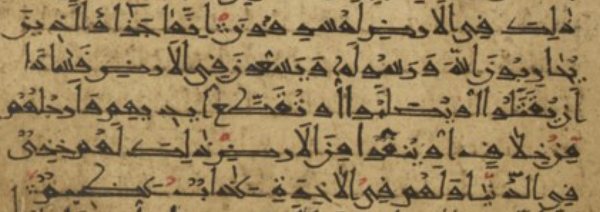 ذلك في الارض لمسرفون انما جزاوا الذين
يحاربون الله ورسوله ويسعون في الارض فسادا
ان يقتلوا او يصلبوا او تقطع ايديهم وارجلهم
من خلاف او ينفوا من الارض ذلك لهم خزي
في الدنيا ولهم في الاخرة عذاب عظيم